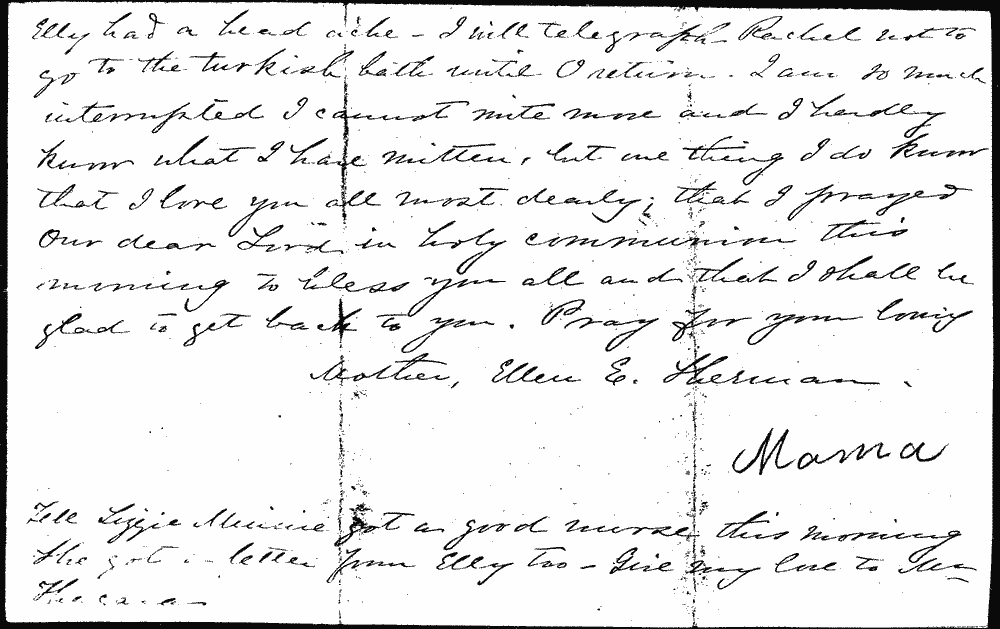 Elly had a head ache – I will telegraph Rachel not to
go to the turkish bath until I return. I am so much
interrupted I cannot write more and I hardly
know what I have written, but one thing I do know
that I love you all most dearly; that I prayed
Our dear Lord in holy communion this
morning to bless you all and that I shall be
glad to get back to you. Pray for your loving
Mother, Ellen E. Sherman.
Mama
Tell Lizzie Minnie got a good nurse this morning
She got a letter from Elly too – Give my love to